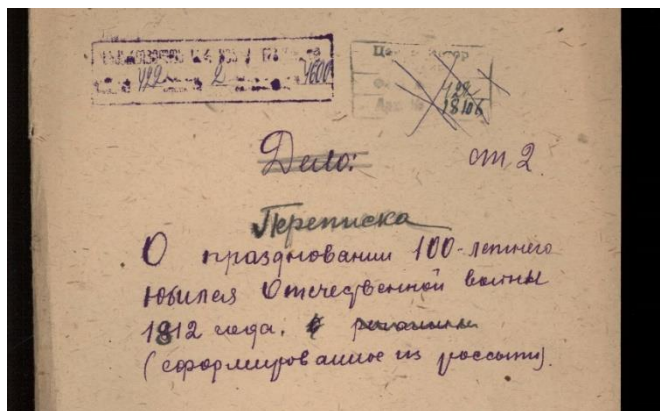 422 2 4600
422
18106
Дело: ст 2.
Переписка
О праздновании 100-летнего
юбилея Отечественной войны
1812 года.
(сформированное из россыпи).